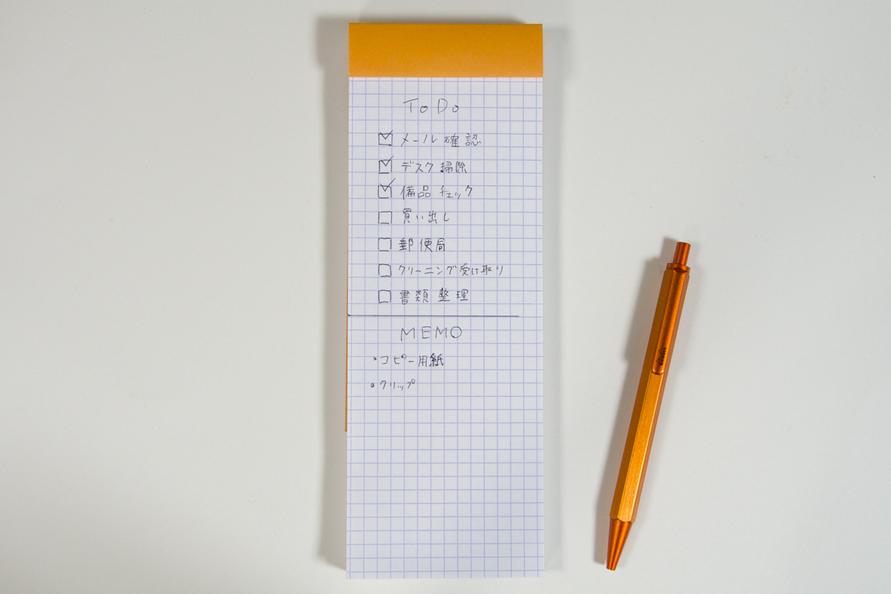 ToDo
☑ メール確認
☑ デスク掃除
☑ 備品チェック
☐ 買い出し
☐ 郵便局
☐ クリーニング受け取り
☐ 書類整理
MEMO
・コピー用紙
・クリップ